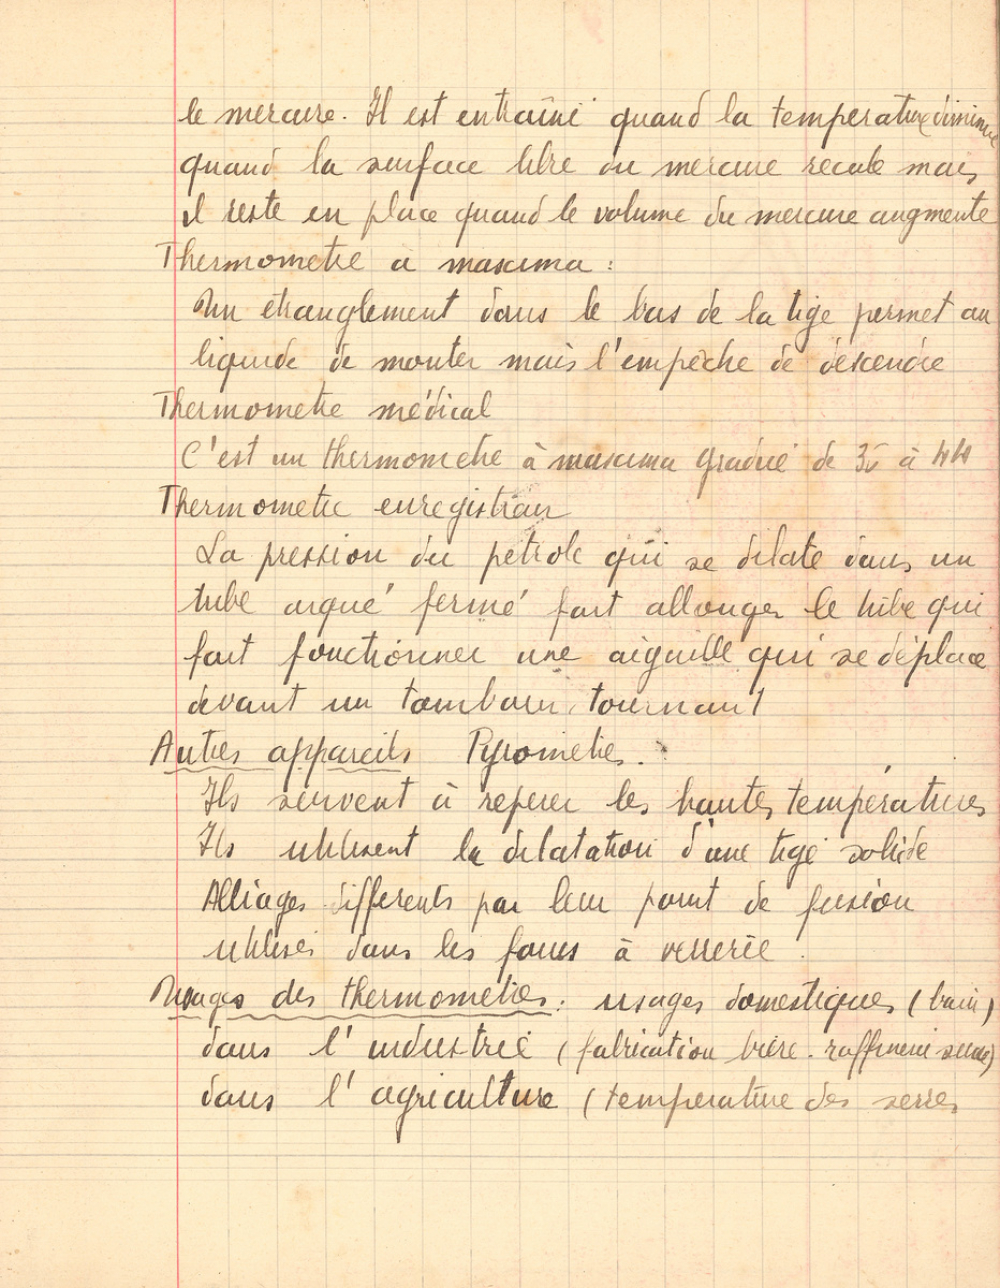 le mercure. Il est entraîné quand la temperature diminue
quand la surface libre du mercure recule mais
il reste en place quand le volume du mercure augmente
Thermometre a maxima :
Un etranglement dans le bas de la tige permet au
liquide de monter mais l'empêche de descendre
Thermometre médical
C'est un thermometre à maxima gradué de 35 à 44
Thermometre enregistreur
La pression du pétrole qui se dilate dans un
tube arqué fermé fait allonger le tube qui
fait fonctionner une aiguille qui se déplace
devant un tambour tournant
Autres appareils Pyrometres.
Ils servent à reperer les hautes températures
Ils utilisent la dilatation d'une tige solide
Alliages differents par leur point de fusion
utilisés dans les fours à verrerie.
Usages des thermometres : usages domestiques (bain)
dans l'industrie (fabrication biere. raffinerie sucre)
dans l'agriculture (temperature des serres